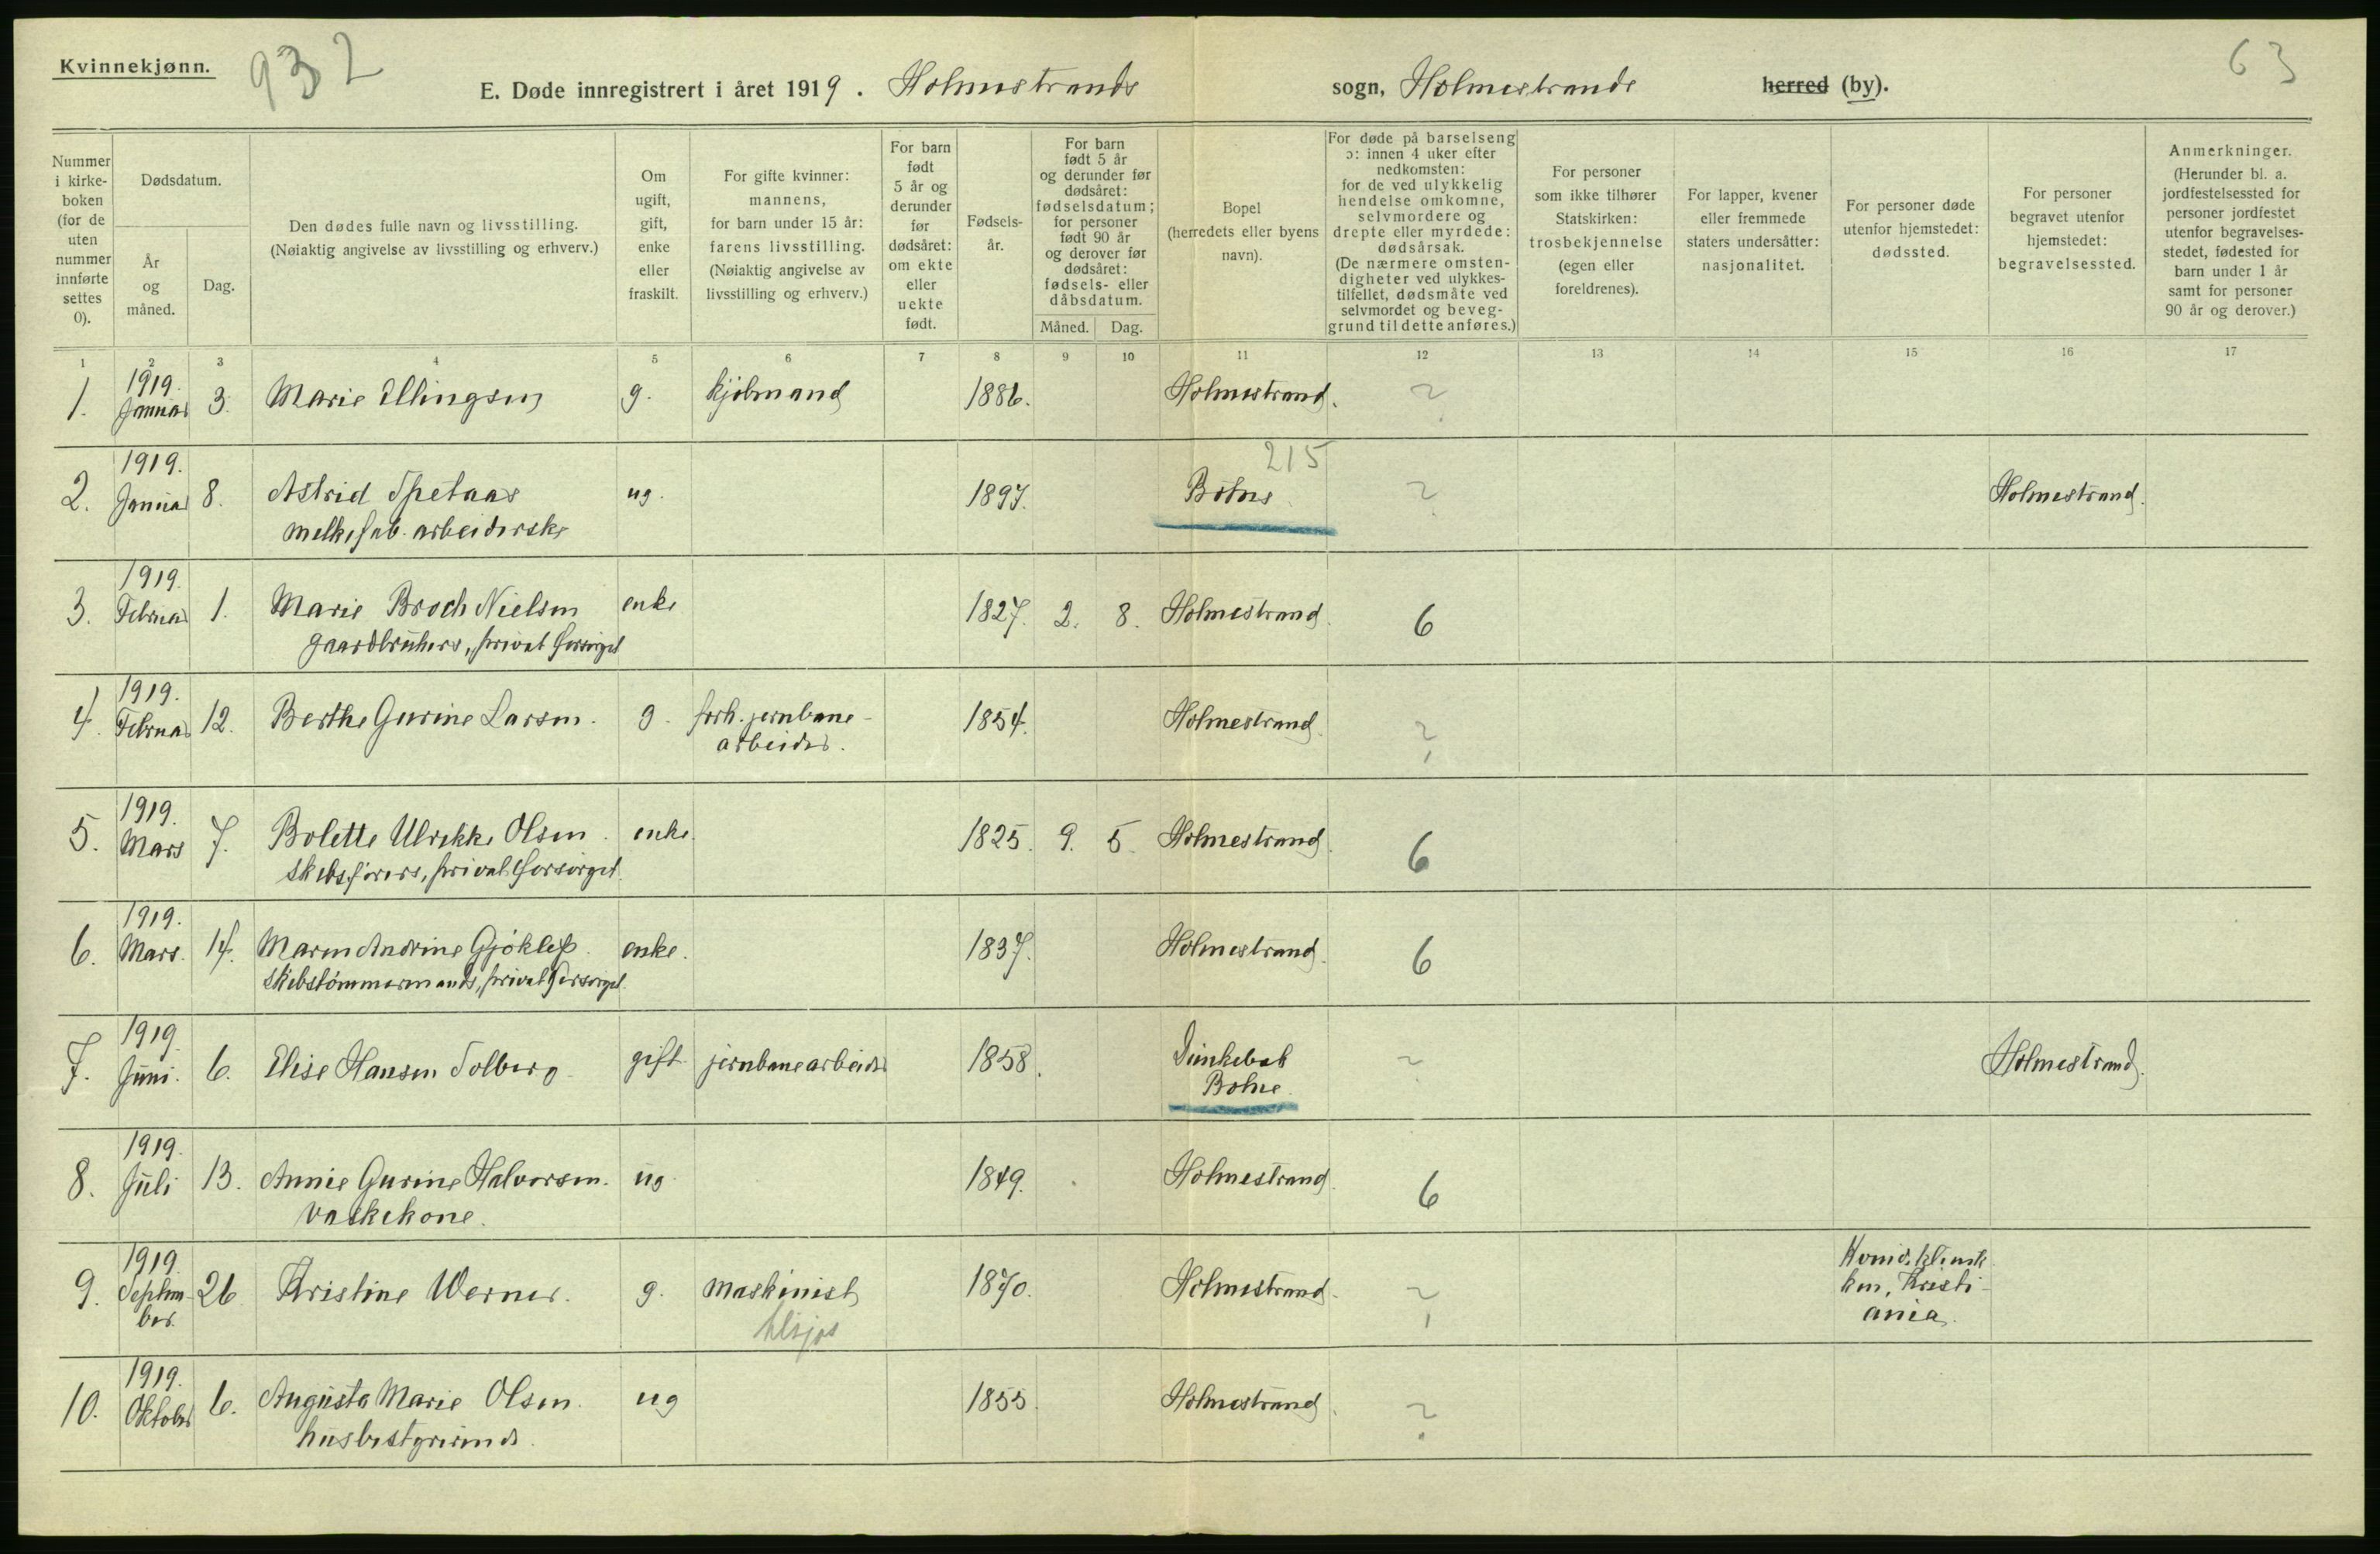 Kvinnekjønn.
932
63
E. Døde innregistrert i året 1919. Holmestrands sogn, Holmestrands herred (by).
Nummer i kirke-boken (for de uten nummer innførte settes 0).
Dødsdatum.
År og måned.
Dag.
Den dødes fulle navn og livsstilling.
(Nøiaktig angivelse av livsstilling og erhverv.)
Om ugift, gift, enke eller fraskilt.
For gifte kvinner: mannens, for barn under 15 år: farens livsstilling. (Nøiaktig angivelse av livsstilling og erhverv.)
For barn født 5 år og derunder før dødsåret: om ekte eller uekte født.
Fødsels-år.
For barn født 5 år og derunder før dødsåret: fødselsdatum; for personer født 90 år og derover før dødsåret: fødsels- eller dåbsdatum.
Måned.
Dag.
Bopel (herredets eller byens navn).
For døde på barselseng ɔ: innen 4 uker efter nedkomsten: for de ved ulykkelig hendelse omkomne, selvmordere og drepte eller myrdede: dødsårsak. (De nærmere omsten-digheter ved ulykkes-tilfellet, dødsmåte ved selvmordet og beveg-grund til dette anføres.)
For personer som ikke tilhører Statskirken: trosbekjennelse (egen eller foreldrenes).
For lapper, kvener eller fremmede staters undersåtter: nasjonalitet.
For personer døde utenfor hjemstedet: dødssted.
For personer begravet utenfor hjemstedet: begravelsessted.
Anmerkninger. (Herunder bl. a. jordfestelsessted for personer jordfestet utenfor begravelses-stedet, fødested for barn under 1 år samt for personer 90 år og derover.)
1 2 3 4 5 6 7 8 9 10 11 12 13 14 15 16 17
1. 1919. Januar 3. Marie Ellingsen g. kjølmand 1886. Holmestrand. ?
215
2. 1919. Januar 8. Astrid Spetaas ug. 1897. Botne ? Holmestrand.
melkefab. arbeiderske
3. 1919. Februar 1. Marie Broch Nielsen enke 1827. 2. 8. Holmestrand. 6
gaardbrukers, privat forsørget
4. 1919. Februar 12. Berthe Gurine Larsen. g. forh. jernbane- 1854. Holmestrand. ?
arbeider.
5. 1919. Mars 7. Bolette Ulrikke Olsen. enke. 1825. 9. 5. Holmestrand. 6
skibsførers, privat forsørget.
6. 1919. Mars. 14. Maren Andrine Gjøklep. enke. 1837. Holmestrand. 6
Skibstømmermands, privat forsørget.
7. 1919. Juni. 6. Elise Hansen Solberg gift jernbanearbeider 1858. ? Holmestrand.
Botne.
8. 1919. Juli 13. Annie Gurine Halvorsen. ug. 1849. Holmestrand. 6
Vaskekone.
9. 1919. Septem- 26 Kristine Werner. g. maskinist 1870. Holmestrand. ?
ber.
ken, Kristi-
ania.
10. 1919. Oktober 6. Augusta Marie Olsen. ug 1855. Holmestrand. ?
husbestyrerinde.